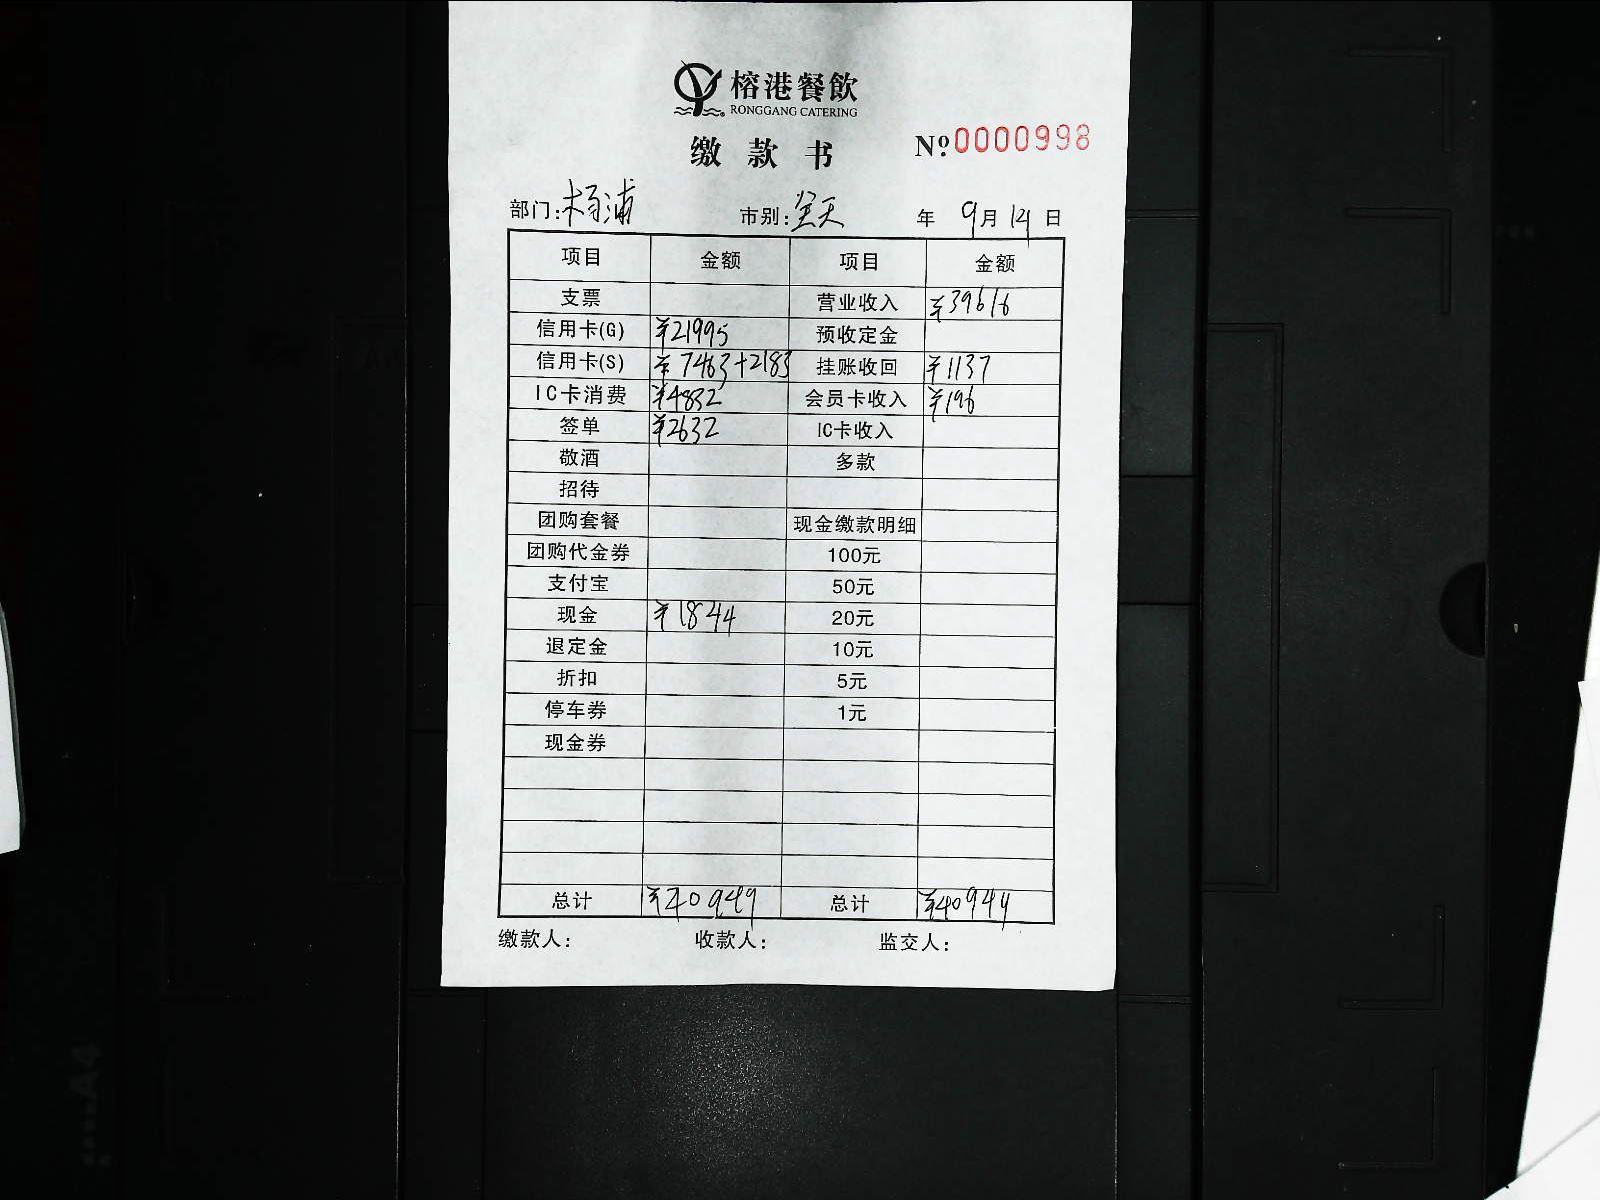 榕港餐飲
RONGGANG CATERING
缴款书 Nº 0000998
部门：杨浦 市别：全天 年 9月14日
项目 金额 项目 金额
支票 营业收入 ¥39616
信用卡(G) ¥21995 预收定金
信用卡(S) ¥7463+2183 挂账收回 ¥1137
IC卡消费 ¥4832 会员卡收入 ¥196
签单 ¥2632 IC卡收入
敬酒 多款
招待
团购套餐 现金缴款明细
团购代金券 100元
支付宝 50元
现金 ¥1844 20元
退定金 10元
折扣 5元
停车券 1元
现金券
总计 ¥40949 总计 ¥40949
缴款人： 收款人： 监交人：
A4